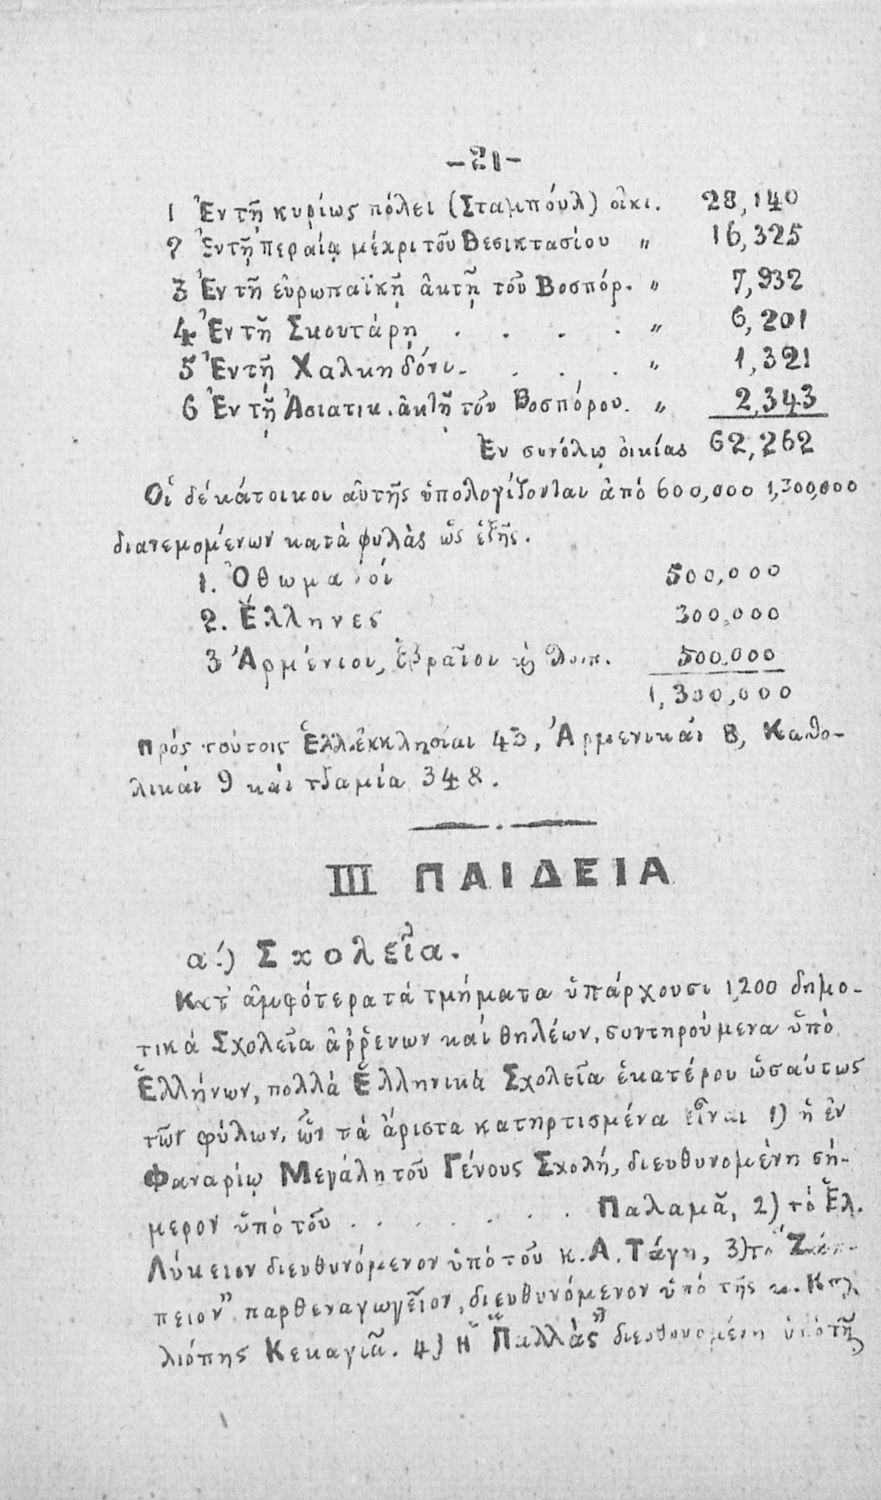 -21-
1 Ἐν τῇ κυρίως πόλει (Σταμπούλ) οἰκι. 28,140
2 Ἐν τῇ περαίᾳ μέχρι τοῦ Βεσικτασίου „ 16,325
3 Ἐν τῇ εὐρωπαϊκῇ ἀκτῇ τοῦ Βοσπόρ. „ 7,932
4 Ἐν τῇ Σκουτάρῃ . . . . „ 6,201
5 Ἐν τῇ Χαλκηδόνι . . . . „ 1,321
6 Ἐν τῇ Ἀσιατικ. ἀκτῇ τοῦ Βοσπόρου. „ 2,343
Ἐν συνόλῳ οἰκίας 62,262
Οἱ δέ κάτοικοι αὐτῆς ὑπολογίζονται ἀπό 600,000 1,300,000
διανεμομένων κατά φυλάς ὡς ἑξῆς.
1. Ὀθωμανοί 500,000
2. Ἕλληνες 300,000
3 Ἀρμένιοι, Ἑβραῖοι ϗ λοιπ. 500,000
1,300,000
Πρός τούτοις Ἑλλ. ἐκκλησίαι 43, Ἀρμενικαί 8, Καθο-
λικαί 9 καί τζαμία 348.
III ΠΑΙΔΕΙΑ
α.) Σχολεῖα.
Κατ' ἀμφότερα τά τμήματα ὑπάρχουσι 1,200 δημο-
τικά Σχολεῖα ἀρρένων καί θηλέων, συντηρούμενα ὑπό
Ἑλλήνων, πολλά Ἑλληνικά Σχολεῖα ἑκατέρου ὡσαύτως
τῶν φύλων, ὧν τά ἄριστα κατηρτισμένα εἶναι 1) ἡ ἐν
Φαναρίῳ Μεγάλη τοῦ Γένους Σχολή, διευθυνομένη σή-
μερον ὑπό τοῦ . . . . . . . Παλαμᾶ, 2) τό Ἑλ.
Λύκειον διευθυνόμενον ὑπό τοῦ κ. Α. Τάγη, 3) τό "Ζάπ-
πειον" παρθεναγωγεῖον, διευθυνόμενον ὑπό τῆς κ. Καλ-
λιόπης Κεκαγιᾶ. 4) Ἡ "Παλλάς" διευθυνομένη ὑπό τῆς